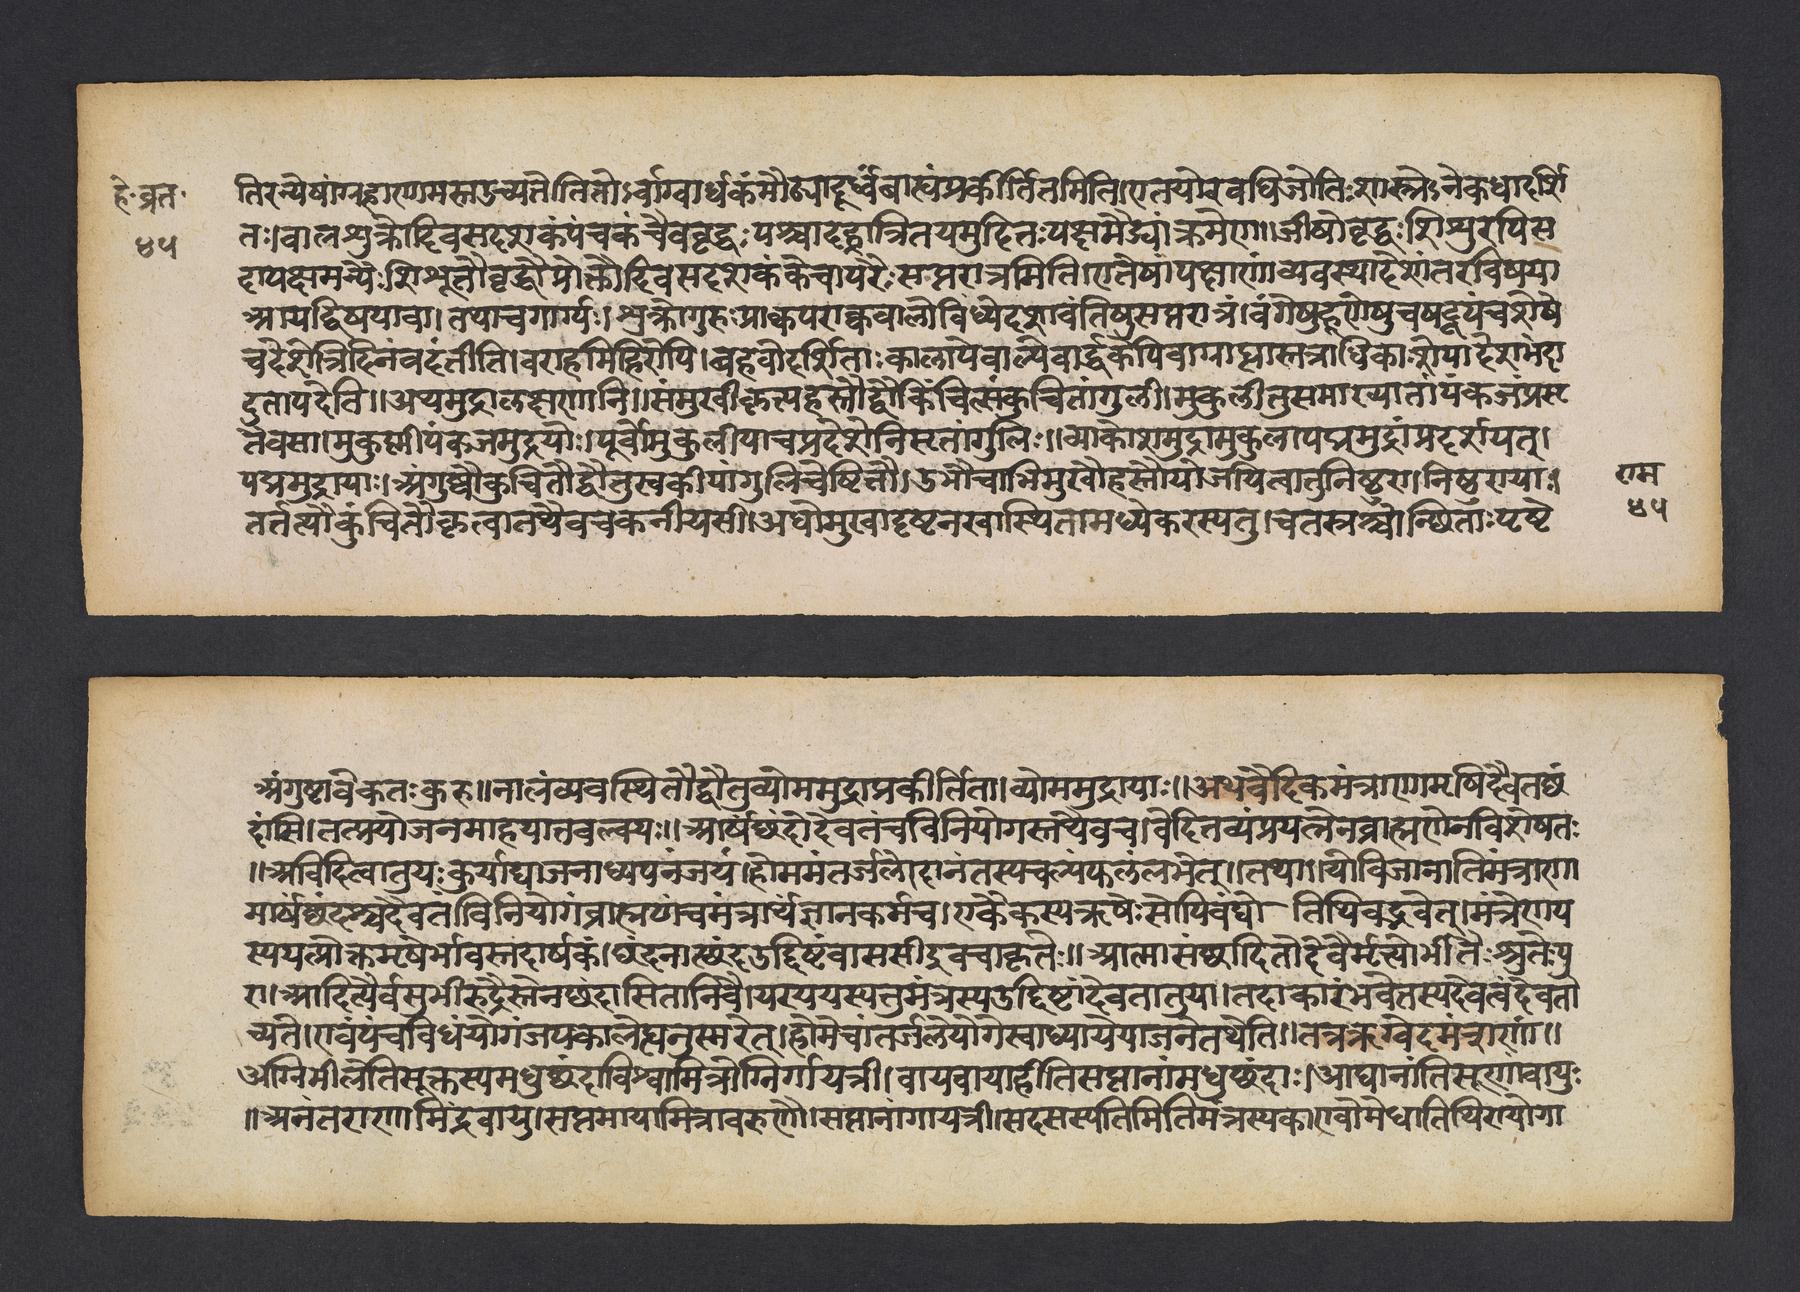 हे·व्रत·
४५
तिरन्येषांग्रहाणामस्तउच्यतेतितो।र्वाग्वार्धकंमौढ्यादूर्ध्वंबाल्यंप्रकीर्तितमिति।एतयोरवधिर्जोतिःशास्त्रेऽनेकधादर्शि
तः।बालशुक्रोदिवसदशकंपंचकंचैववृद्धःपश्चादह्नांत्रितयमुदितःपक्षमैंद्र्यांक्रमेण।।जीवोवृद्धःशिशुरपिस
दापक्षमन्यैःशिशूतौवृद्धौप्रोक्तौदिवसदशकंकैचापरैःसप्तरात्रमिति।एतेषांपक्षाणांव्यवस्थादेशांतरविषया
आपद्विषयावा।तथाचगार्ग्यः।शुक्रोगुरुःप्राक्चपराक्चबालोविंध्येदशावंतिषुसप्तरात्रं।वंगेषुहूणेषुचषट्पंचशेषे
चदेशेत्रिदिनंवदंतीति।वराहमिहिरोपि।बहवोदर्शिताःकालायेबाल्येवार्द्धकेपिवाग्राह्यास्तत्राधिकाःशेषादेशभेदा
दुतापदेति।।अथमुद्रालक्षणानि।।संमुखीकृत्यहस्तौद्वौकिंचित्संकुचितांगुली।मुकुलीतुसमाख्यातापंकजंप्रसृ
तैवसा।मुकुलीपंकजमुद्रयोः।पूर्वोमुकुलीयाचप्रदेशेनिसृतांगुलिः।।आकाशमुद्रामुकुलापद्ममुद्रांप्रदर्शयेत्।
पद्ममुद्रायाः।अंगुष्ठौकुचितौद्वौतुस्वकीयांगुलिवेष्टितौ।उभौचाभिमुखौहस्तौयोजयित्वातुनिष्ठुरा।निष्ठुरायाः।
तर्ज्जन्यौकुंचितौकृत्वातथैवचकनीयसी।अधोमुखादृष्टनखास्थितामध्येकरस्यतु।चतस्रश्चोन्छ्रिताःपृष्ठे
राम
४५
अंगुष्टावेकतःकुरु।।नालंव्यवस्थितौद्वौतुव्योममुद्राप्रकीर्तिता।व्योममुद्रायाः।।अथवैदिकमंत्राणामृषिदैवतछं
दांसि।तत्प्रयोजनमाहयाज्ञवल्क्यः।।आर्षंछंदोदैवतंचविनियोगस्तथैवच।वेदितव्यंप्रयत्नेनब्राह्मणेनविशेषतः
।।अविदित्वातुयःकुर्याद्याजनाध्यपनंजपं।होममंतर्जलेदानंतस्यचल्पंफलंलभेत्।।तथा।।योविजानातिमंत्राणा
मार्षंछंदश्चदैवतं।विनियोगंब्राह्मणंचमंत्रार्थंज्ञानकर्मच।एकैकस्यऋषेःसोपिवंद्यो तिथिवद्भवेत्।मंत्रेणय
स्ययत्प्रोक्तमृषेर्भावस्तदार्षकं।छंदनाच्छंदउद्दिष्टंवाससीइवचाकृतेः।।आत्मासंछादितोदेवैर्मृत्योर्भीतैःश्रुतेःपु
रा।आदित्यैर्वसुभीरुद्रैस्तेनछंदासितानिवै।यस्ययस्यतुमंत्रस्यउद्दिष्टांदेवतातुया।तदाकारंभवेत्तस्यदेवत्वंदेवतो
च्यते।एवंपंचविधंयोगंजपकालेह्यनुस्मरेत्।होमेचांतर्जलेयोगेस्वाध्यायेयाजनेतथेति।।तत्रऋग्वेदमंत्राणां।।
अग्निमीलेतिसूक्तस्यमधुछंदाविश्वामित्रोग्निर्गायत्री।वायवायाहीतिसप्तानांमधुछंदाः।आद्यानांतिसृणांवायुः
।।अनंतराणामिंद्रवायु।सप्तमायामित्रावरुणौ।सप्तानांगायत्री।सदसस्पतिमितिमंत्रस्यकाण्वोमेधातिथिरायोगा